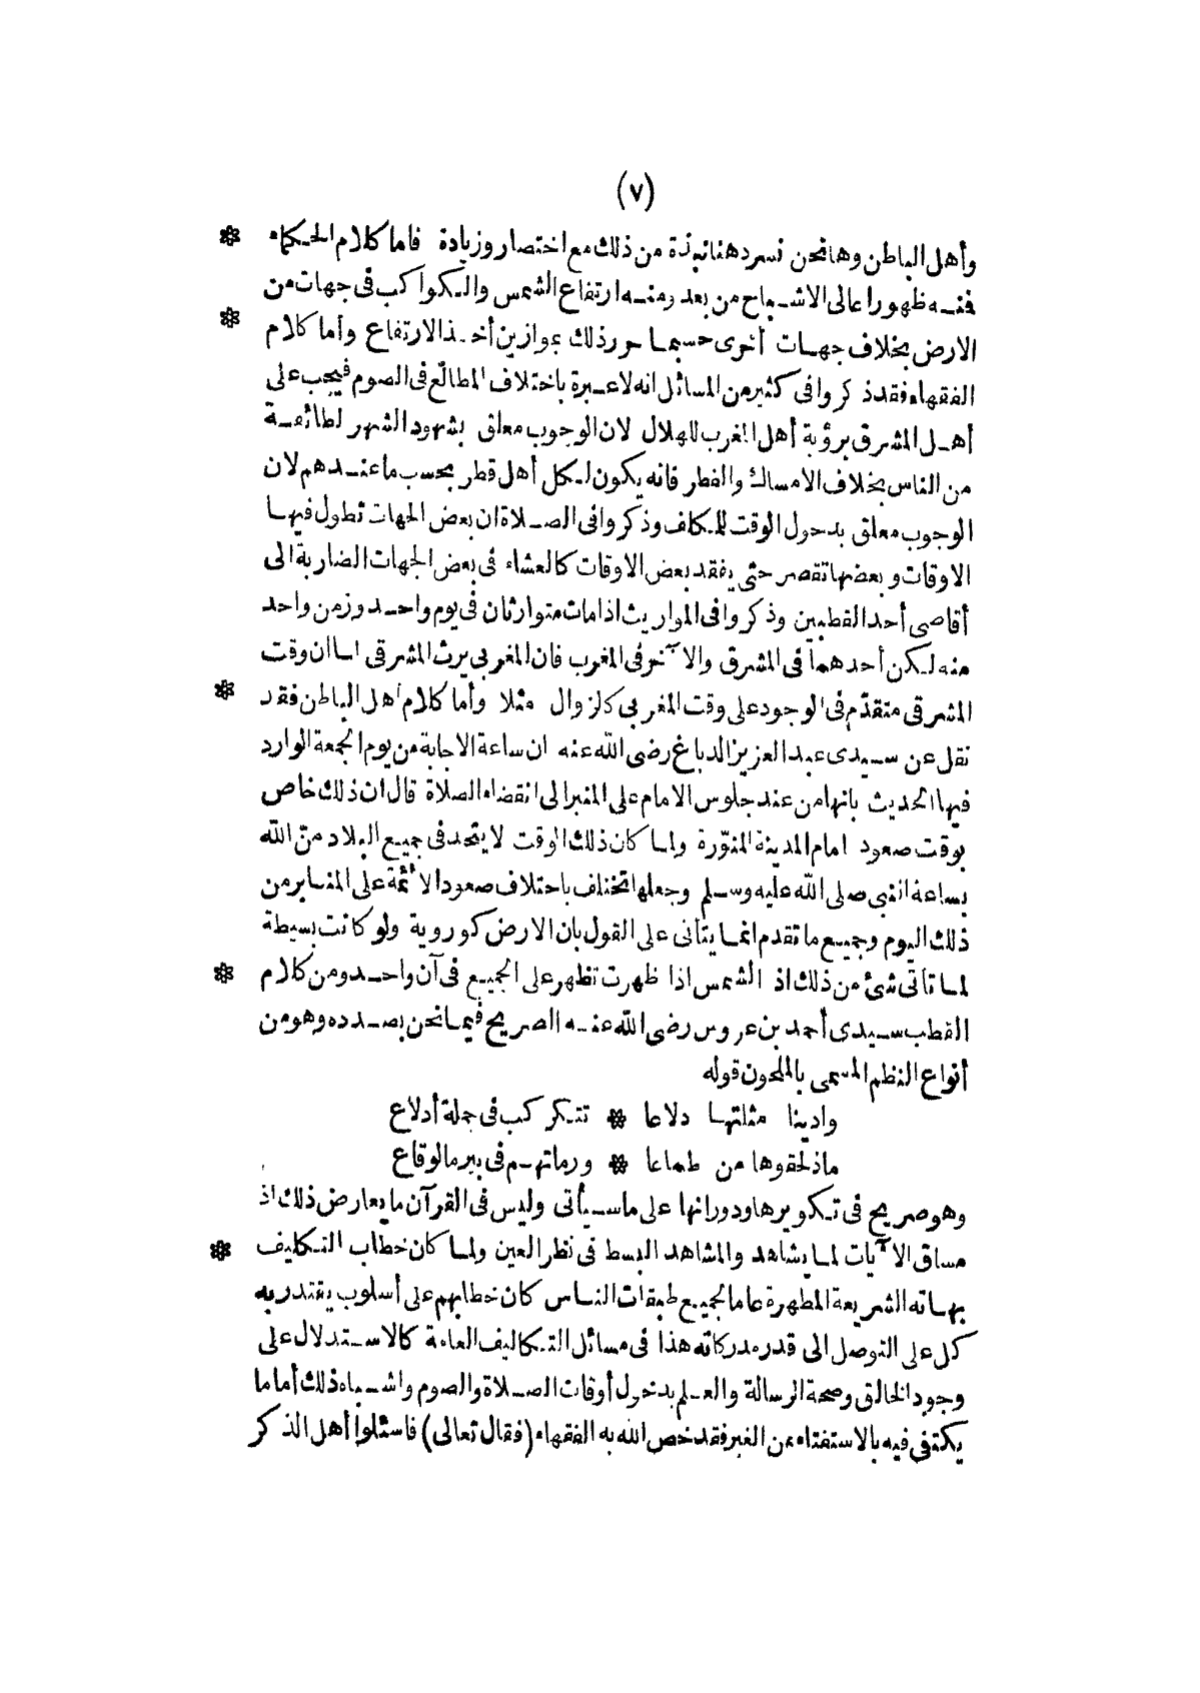 (٧)
وأهل الباطن وها نحن نسرد هنا نبذة من ذلك مع اختصار وزيادة فاما كلام الحكماء *
فنه ظهور اعالى الاشباح من بعد ومنه ارتفاع الشمس والكواكب فى جهات من
الارض بخلاف جهات أخرى حسبما حرر ذلك بموازين أخذ الارتفاع وأما كلام *
الفقهاء فقد ذكروا فى كثير من المسائل انه لا عبرة باختلاف المطالع فى الصوم فيجب على
أهل المشرق برؤية أهل المغرب للهلال لان الوجوب معلق بشهود الشهر لطائفة
من الناس بخلاف الامساك والفطر فانه يكون لكل أهل قطر بحسب ما عندهم لان
الوجوب معلق بدخول الوقت للمكلف وذكروا فى الصلاة ان بعض الجهات تطول فيها
الاوقات وبعضها تقصر حتى يفقد بعض الاوقات كالعشاء فى بعض الجهات الضاربة الى
أقاصى أحد القطبين وذكروا فى المواريث اذا مات متوارثان فى يوم واحد وزمن واحد
منه لكن أحدهما فى المشرق والآخر فى المغرب فان المغربى يرث المشرقى لما ان وقت
المشرقى متقدّم فى الوجود على وقت المغربى كالزوال مثلا وأما كلام أهل الباطن فقد *
نقل عن سيدى عبد العزيز الدباغ رضى الله عنه ان ساعة الاجابة من يوم الجمعة الوارد
فيها الحديث بانها من عند جلوس الامام على المنبر الى انقضاء الصلاة قال ان ذلك خاص
بوقت صعود امام المدينة المنوّرة ولما كان ذلك الوقت لا يتحد فى جميع البلاد منّ الله
بساعة النبى صلى الله عليه وسلم وجعلها تختلف باختلاف صعود الائمة على المنابر من
ذلك اليوم وجميع ما تقدم انما يتأتى على القول بان الارض كوروية ولو كانت بسيطة
لما تأتى شئ من ذلك اذ الشمس اذا ظهرت تظهر على الجميع فى آن واحد ومن كلام *
القطب سيدى أحمد بن عروس رضى الله عنه الصريح فيما نحن بصدده وهو من
أنواع النظم المسمى بالملحون قوله
وادينا مثلتها دلاعا * تتكركب فى جملة أدلاع
ماذلحقوها من طماعا * ورماتهم فى بير مالو قاع
وهو صريح فى تكويرها ودورانها على ما سيأتى وليس فى القرآن ما يعارض ذلك اذ
مساق الآيات لما يشاهد والمشاهد البسط فى نظر العين ولما كان خطاب التكليف *
بهاته الشريعة المطهرة عاما لجميع طبقات الناس كان خطابهم على أسلوب يقتدر به
كل على التوصل الى قدر مدركاته هذا فى مسائل التكاليف العامة كالاستدلال على
وجود الخالق وصحة الرسالة والعلم بدخول أوقات الصلاة والصوم واشباه ذلك أما ما
يكتفى فيه بالاستفتاء من الغير فقد خص الله به الفقهاء (فقال تعالى) فاسئلوا أهل الذكر